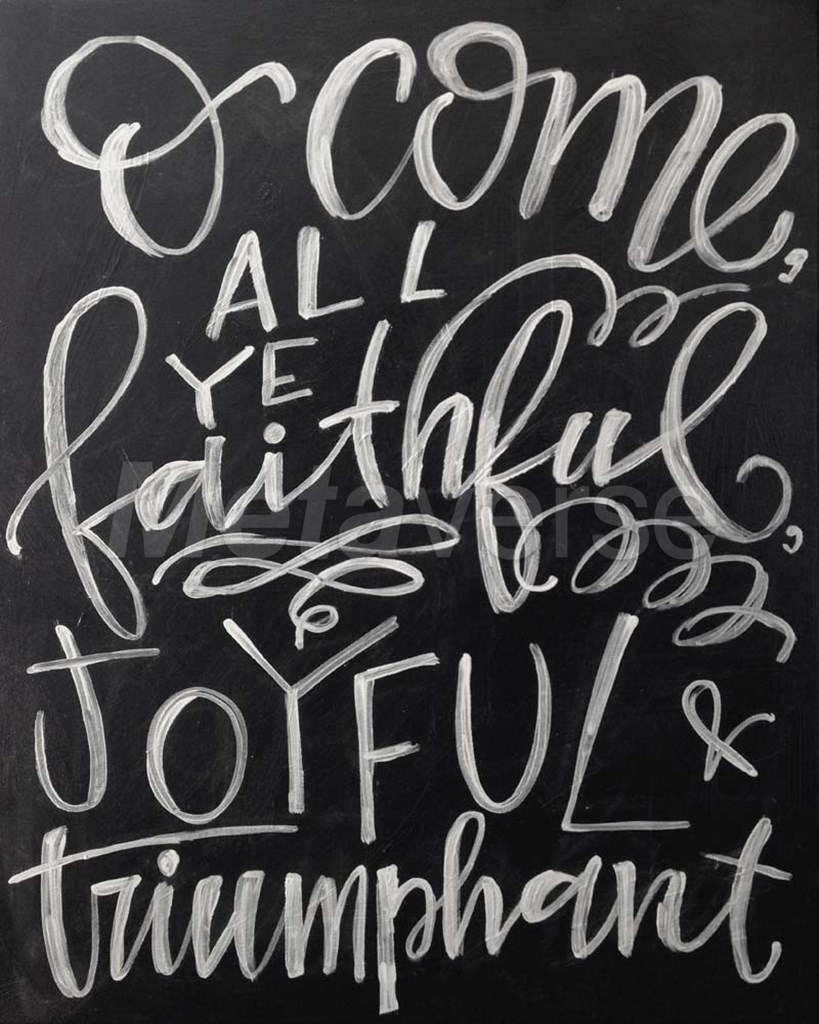 O come,
ALL
YE
faithful,
JOYFUL &
triumphant
Metaverse